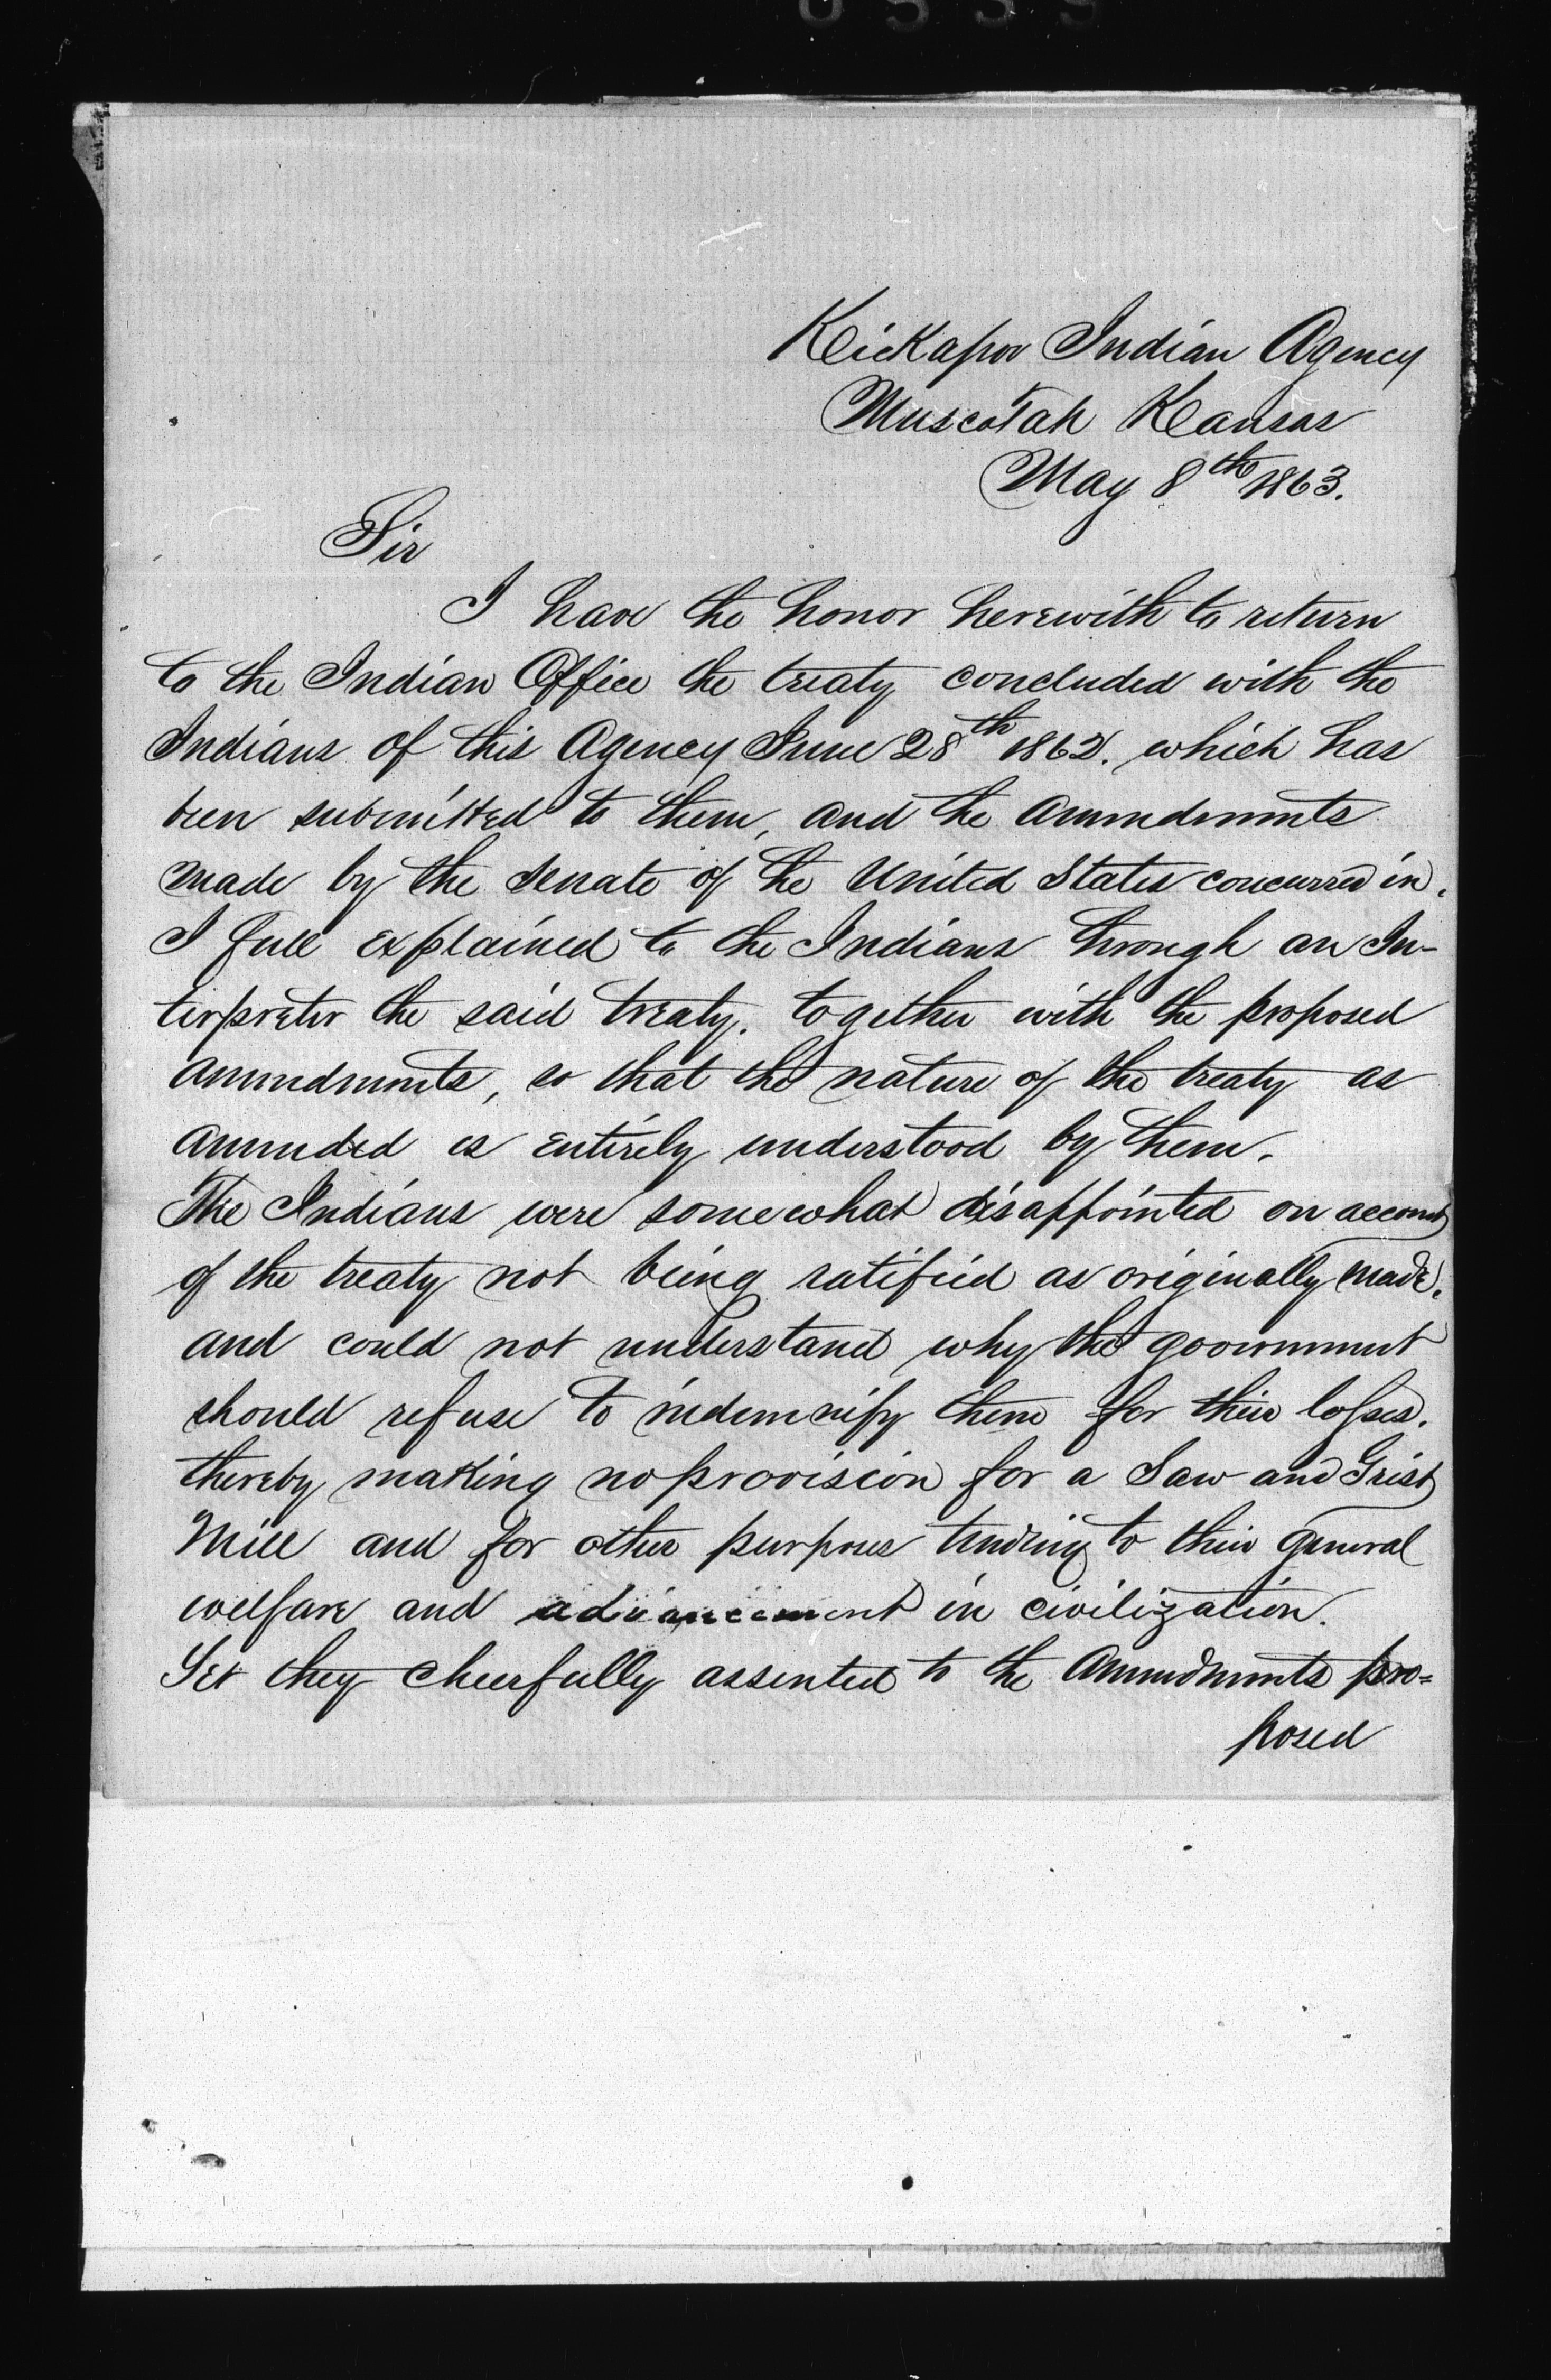 Kickapoo Indian Agency
Muscotah Kansas
May 8th 1863.
Sir
I have the honor herewith to return
to the Indian Office the treaty concluded with the
Indians of this Agency June 28th 1862. which has
been submitted to them, and the amendments
made by the Senate of the United States concurred in.
I full explained to the Indians through an In-
terpreter the said treaty. together with the proposed
amendments, so that the nature of the treaty as
amended is entirely understood by them.
The Indians were somewhat disappointed on account
of the treaty not being ratified as originally made.
and could not understand why the government
should refuse to indemnify them for their losses.
thereby making no provision for a Saw and Grist
Mill and for other purposes tending to their general
welfare and advancement in civilization.
Yet they cheerfully assented to the amendments pro=
posed